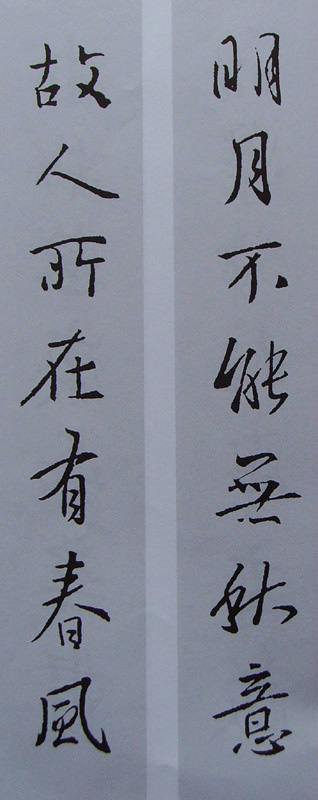 明月不能無秋意
故人所在有春風